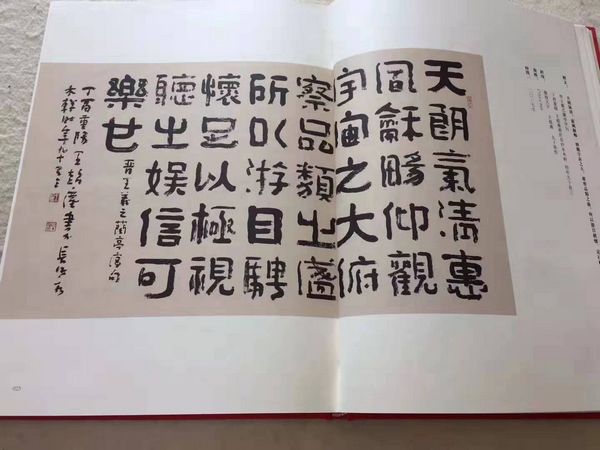 天朗氣清惠
風龢暢仰觀
宇宙之大俯
察品類之盛
所以游目騁
懷足以極視
聽之娛信可
樂也
晉王羲之蘭亭序句
丁酉零陵王超塵書於長沙
木軒時年九十